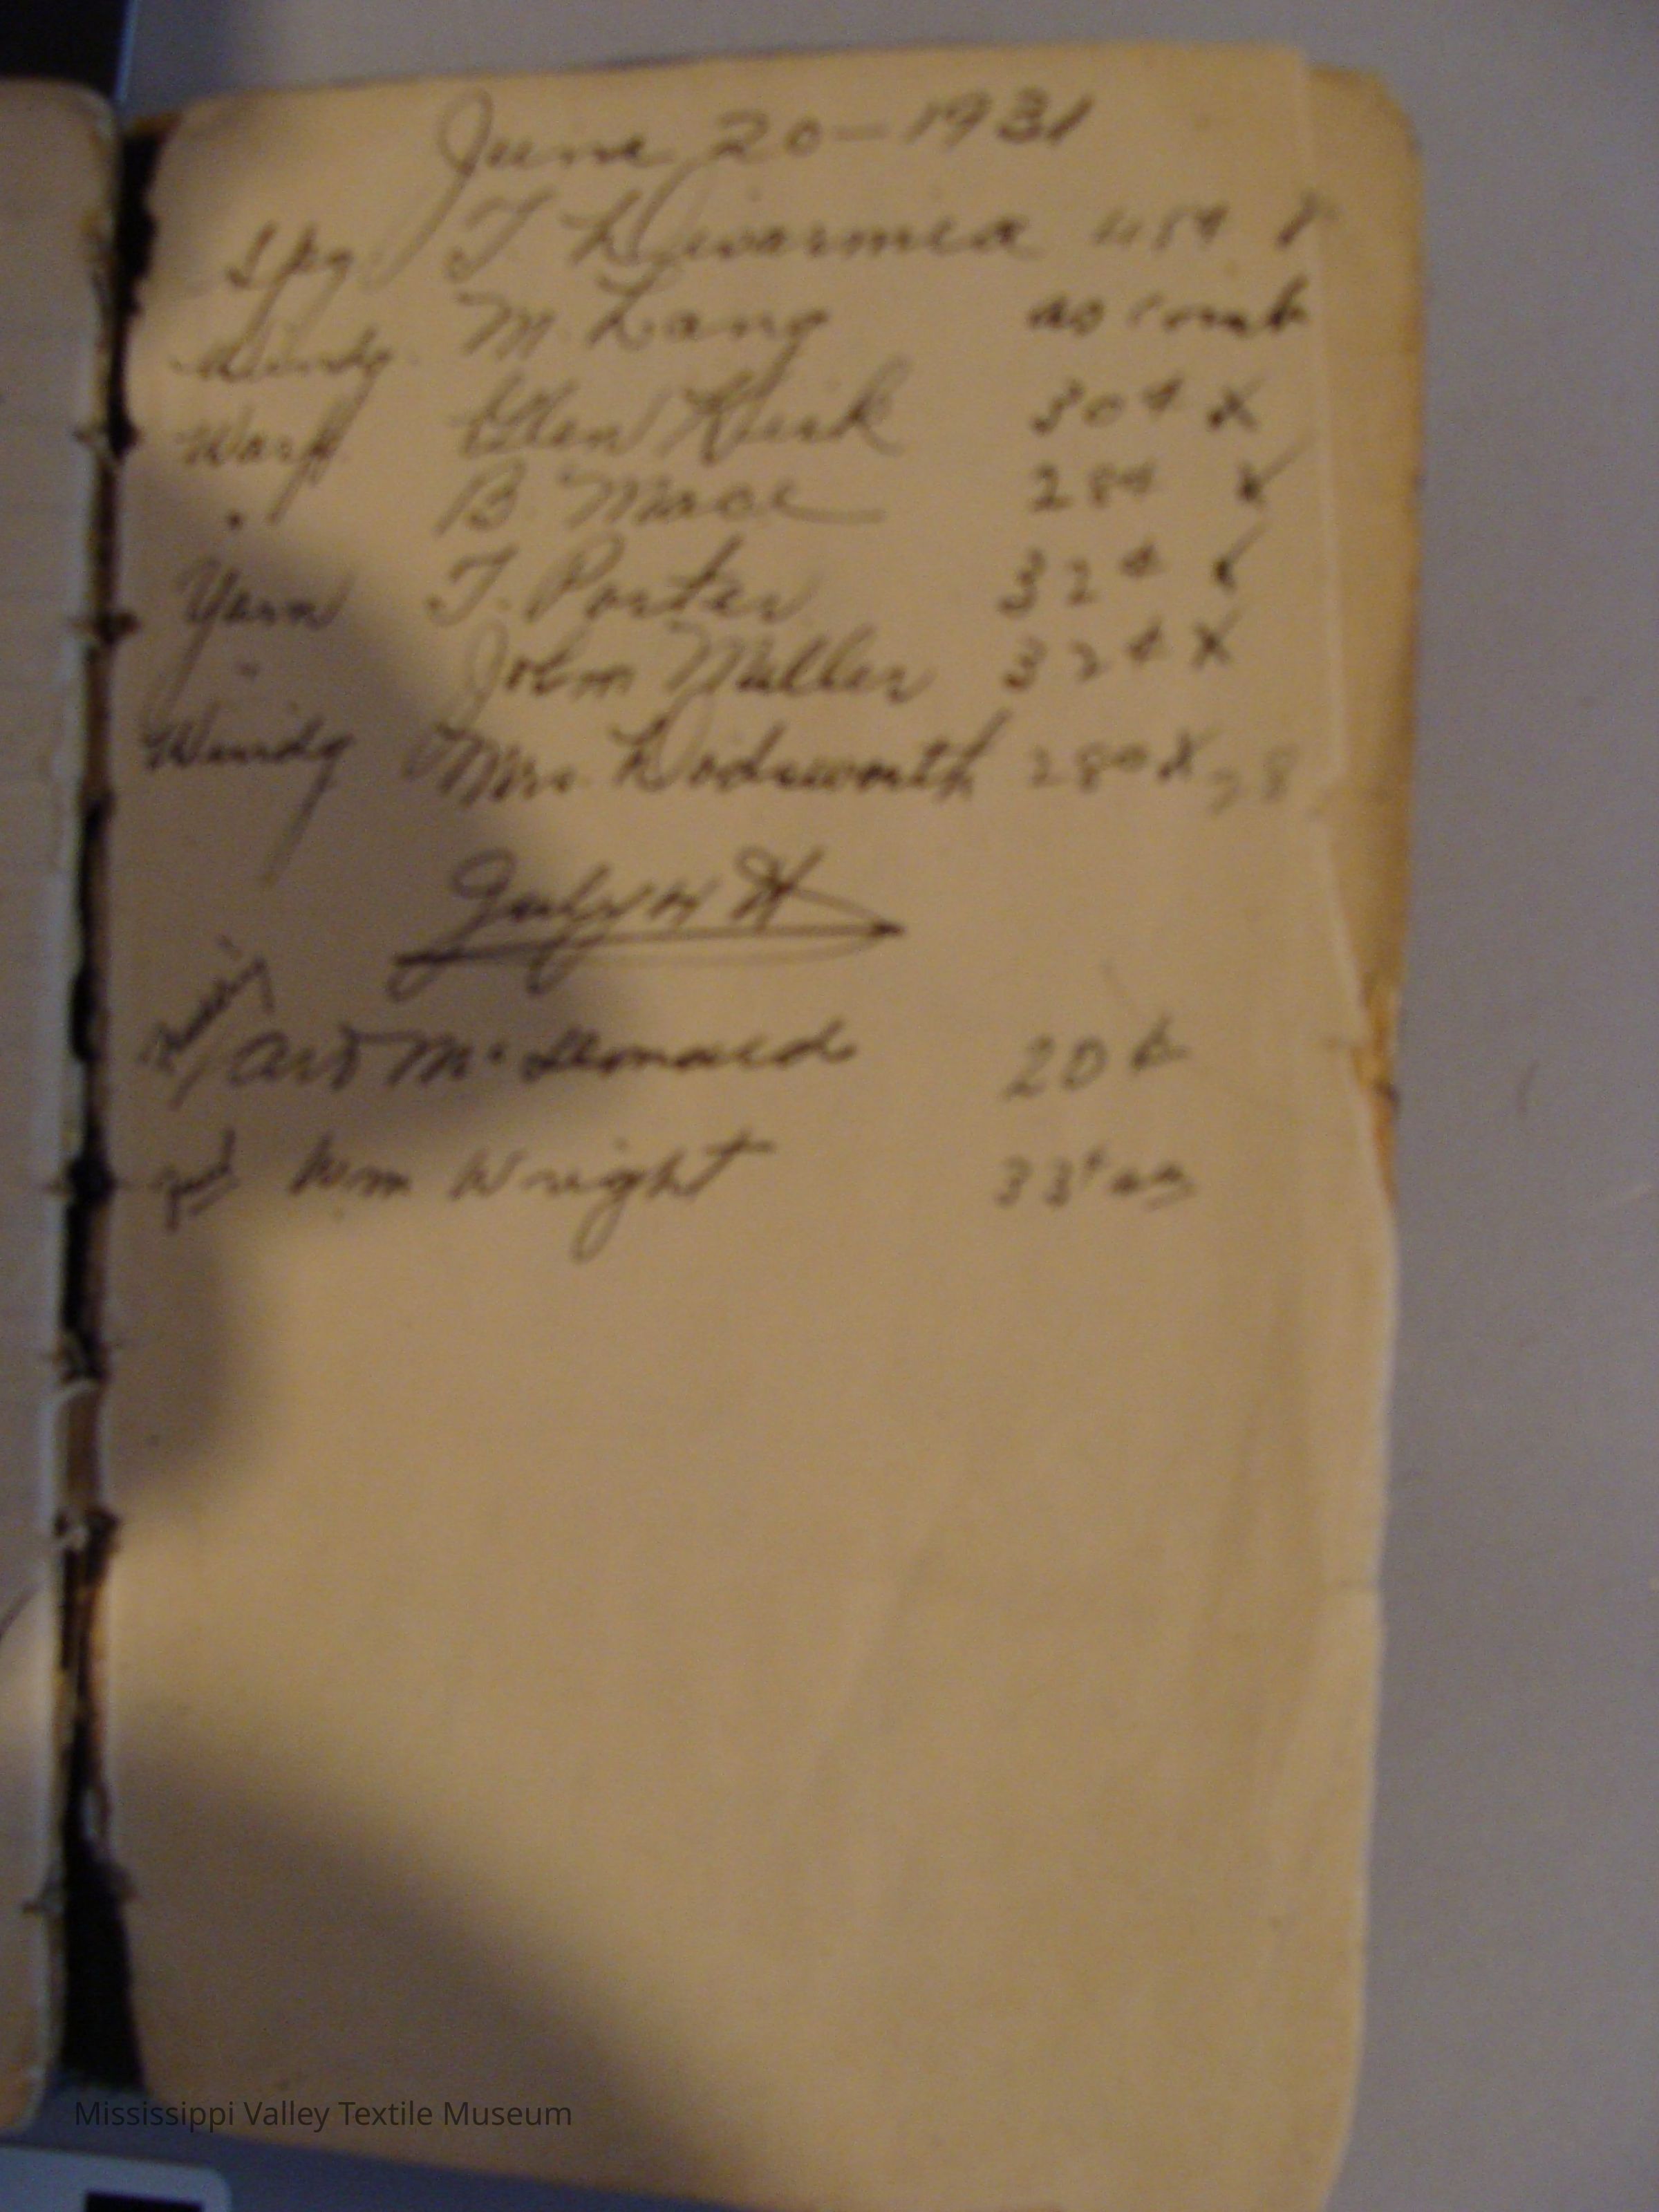 June 20 - 1931
Spg. T. 45¢
Windg. M. Lang
Warp Glen Kirk 30¢ X
" B. Mace 28¢ X
Yarn T. Porter 32¢ X
" John Miller 32¢ X
Windg Mrs. Dodsworth 28¢ X 28
July
McDonald 20¢
Wm Wright 33¢
Mississippi Valley Textile Museum